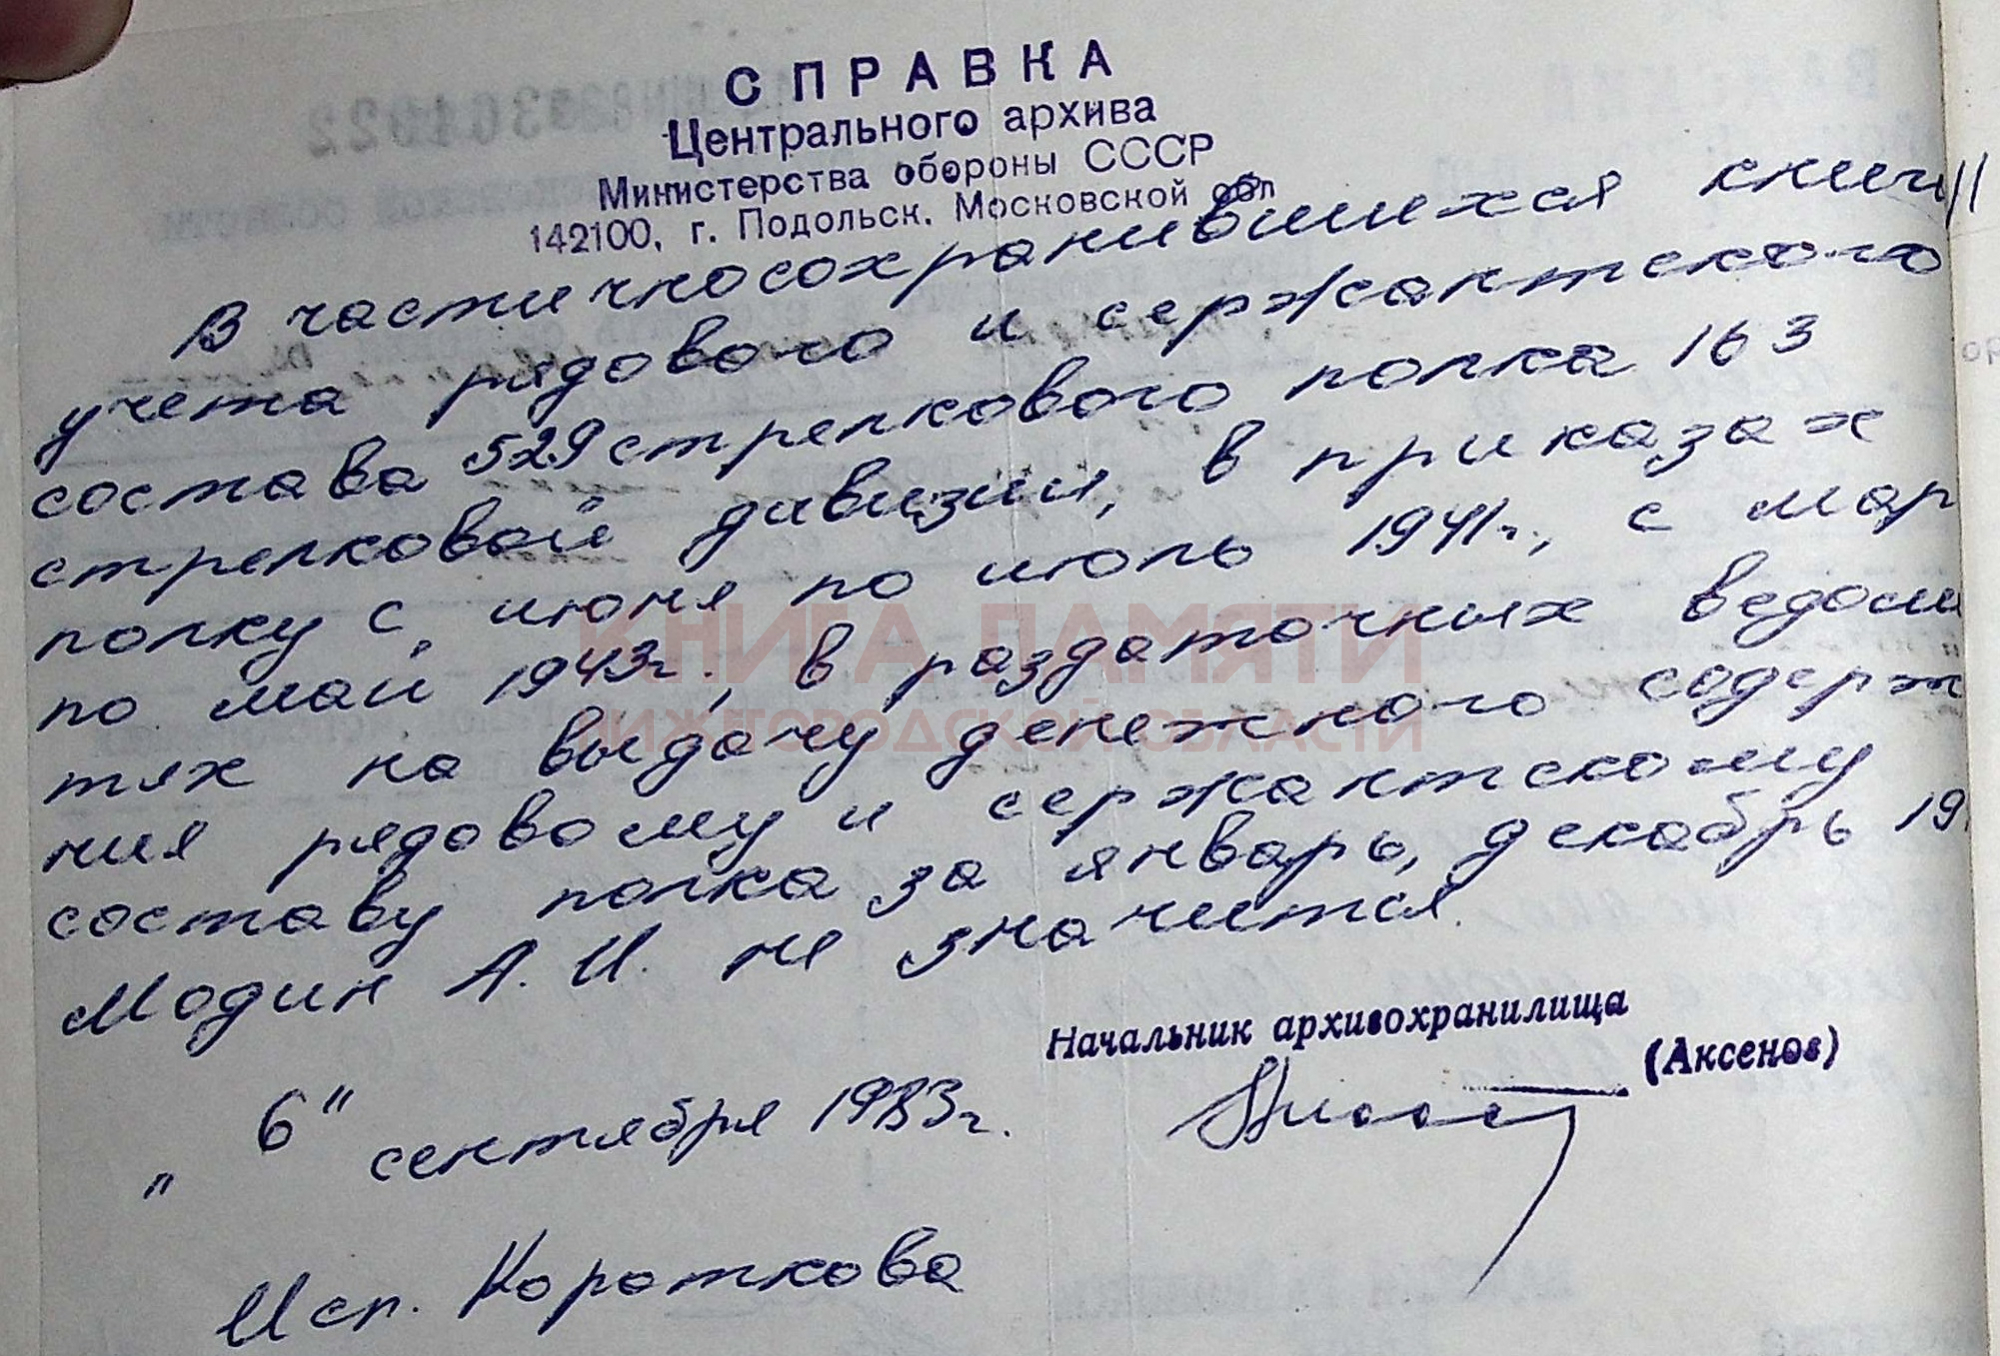 СПРАВКА
Центрального архива
Министерства обороны СССР
142100, г. Подольск, Московской обл
В частично сохранившихся книгах
учета рядового и сержантского
состава 529 стрелкового полка 163
стрелковой дивизии, в приказах
полку с июня по июль 1941г., с мар
по май 1943г., в раздаточных ведомо
тях на выдачу денежного содержа
ния рядовому и сержантскому
составу полка за январь, декабрь 19
Модин А.И. не значится.
Начальник архивохранилища
(Аксенов)
"6" сентября 1983г.
Исп. Короткова
КНИГА ПАМЯТИ
НИЖЕГОРОДСКОЙ ОБЛАСТИ